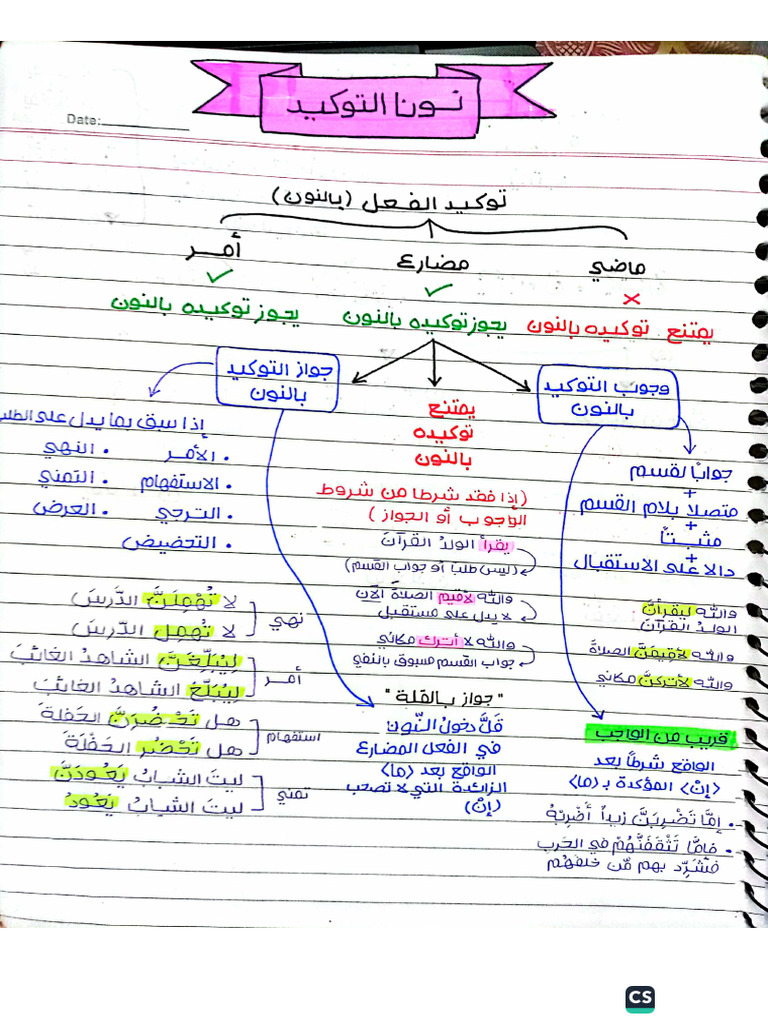 نونا التوكيد
Date:
توكيد الفعل (بالنون)
ماضي
مضارع
أمر
يمتنع توكيده بالنون
يجوز توكيده بالنون
يجوز توكيده بالنون
وجوب التوكيد
بالنون
جوابٌ لقسم
+
متصلاً بلام القسم
+
مثبتاً
+
دالا على الاستقبال
والله ليقرأنَّ
الولدُ القرآنَ
والله لأقيمَنَّ الصلاةَ
والله لأتركنَّ مكاني
قريب من الواجب
الواقع شرطاً بعد
<إنْ> المؤكدة بـ <ما>
• إمَّا تَضْرِبَنَّ زيداً أَضْرِبْهُ
• فإمَّا تَثْقَفَنَّهُمْ في الحَربِ
فشَرِّد بهم مّن خلفَهُم
يمتنع
توكيده
بالنون
(إذا فقد شرطا من شروط
الوجوب أو الجواز)
يقرأ الولدُ القرآنَ
(ليس طلباً أو جواب القسم)
والله لأقيم الصلاةَ الآن
لا يدل على مستقبل
والله لا أترك مكاني
جواب القسم مسبوق بالنفي
جواز التوكيد
بالنون
"جواز بالقلة"
قَلَّ دخولُ النّون
في الفعل المضارع
الواقع بعد <ما>
الزائدة التي لا تصحب
(إنْ)
إذا سبق بما يدل على الطلب
• الأمر • النهي
• الاستفهام • التمني
• الترجي • العرض
• التحضيض
نهي
لا تُهْمِلَنَّ الدَّرسَ
لا تُهمِل الدّرسَ
أمر
لِيُبَلِّغَنَّ الشاهدُ الغائبَ
لِيُبَلِّغْ الشاهدُ الغائبَ
استفهام
هل تَحْضُرَنَّ الحَفلةَ
هل تَحْضُر الحَفْلَةَ
تمني
ليتَ الشبابُ يَعُودَنَّ
ليتَ الشبابُ يَعُودُ
CS